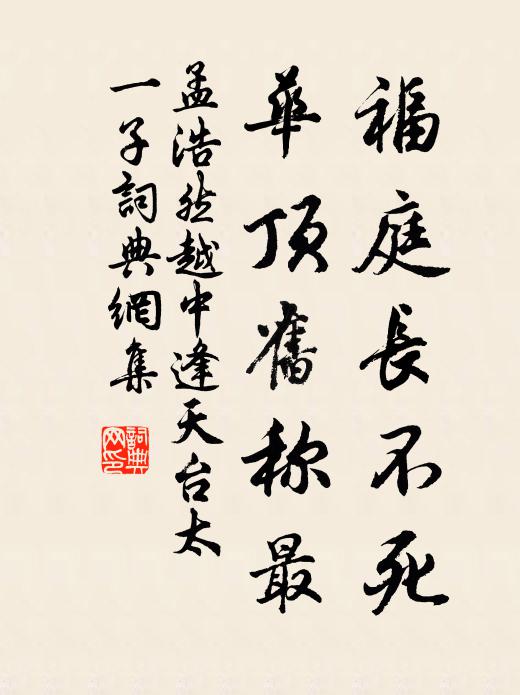 福庭長不死
華頂舊称最
孟浩然越中逢天台太
一子詞典網集
詞典网印